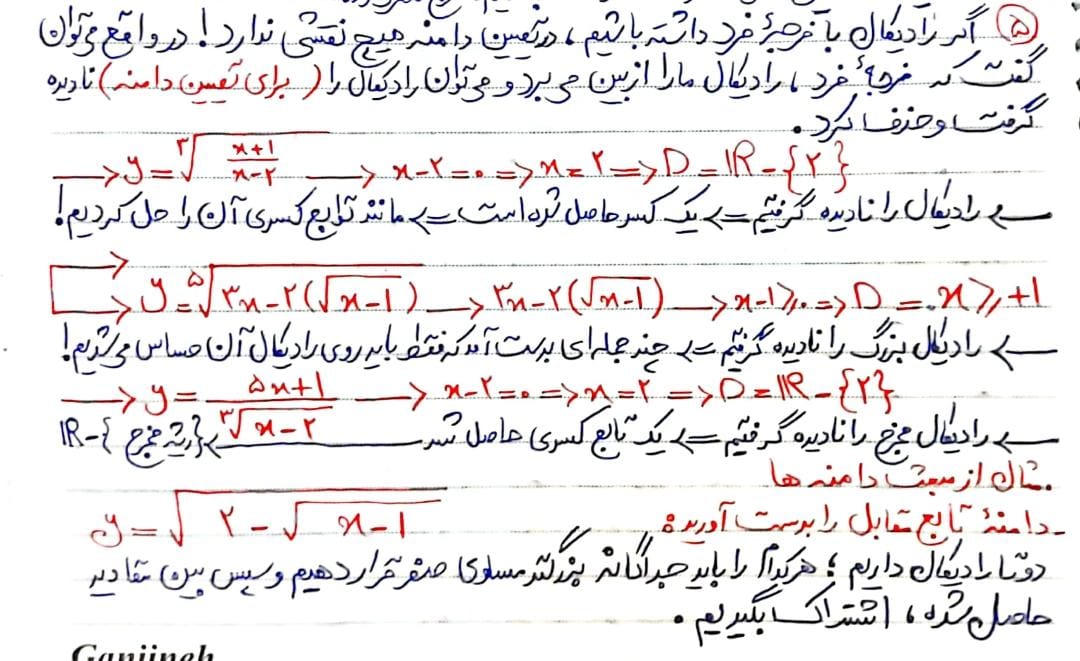 ⑤ اگر رادیکال با فرجهٔ فرد داشته باشیم، در تعیین دامنه هیچ نقشی ندارد! در واقع می‌توان
گفت که فرجهٔ فرد، رادیکال ما را از بین می‌برد و می‌توان رادیکال را (برای تعیین دامنه) نادیده
گرفت و حذف کرد.
→ y = ∛((x+1)/(x-۲)) → x-۲=۰ => x=۲ => D=IR-{۲}
→ رادیکال را نادیده گرفتیم => یک کسر حاصل شده است => مانند توابع کسری آن را حل کردیم!
→ y = ⁵√(۳x-۲(√(x-1))) → ۳x-۲(√(x-1)) → x-1≥۰ => D = x≥+1
→ رادیکال بزرگ را نادیده گرفتیم => چند جمله‌ای بدست آمد که فقط باید روی رادیکال آن حساس می‌شدیم!
→ y = (۵x+1)/(∛(x-۲)) → x-۲=۰ => x=۲ => D=IR-{۲}
→ رادیکال مخرج را نادیده گرفتیم => یک تابع کسری حاصل شد → IR-{ریشه مخرج}
مثال از مبحث دامنه ها.
- دامنهٔ تابع مقابل را بدست آورید: y = √(۲-√(x-1))
دو تا رادیکال داریم؛ هرکدام را باید جداگانه بزرگتر مساوی صفر قرار دهیم و سپس بین مقادیر
حاصل شده، اشتراک بگیریم.
Ganjineh